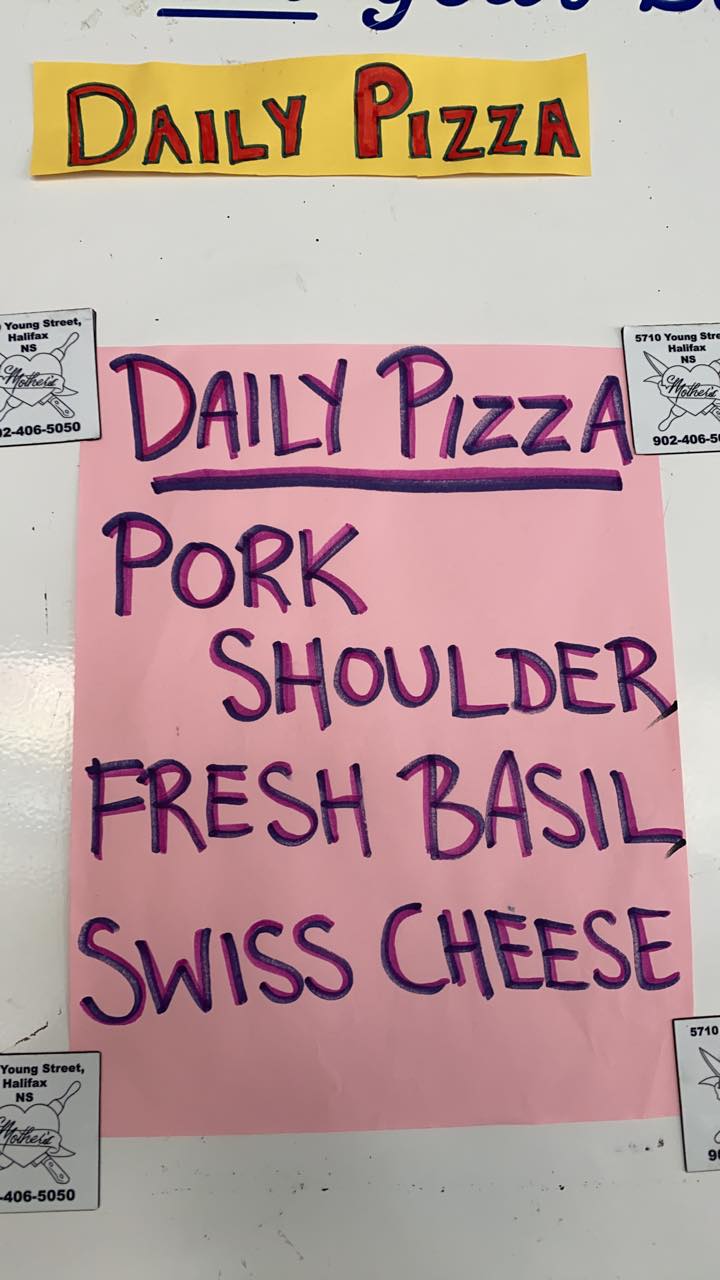 DAILY PIZZA
Young Street,
Halifax
NS
Mother's
02-406-5050
5710 Young Stre
Halifax
NS
Mother's
902-406-50
DAILY PIZZA
PORK
SHOULDER,
FRESH BASIL,
SWISS CHEESE
Young Street,
Halifax
NS
Mother's
-406-5050
5710